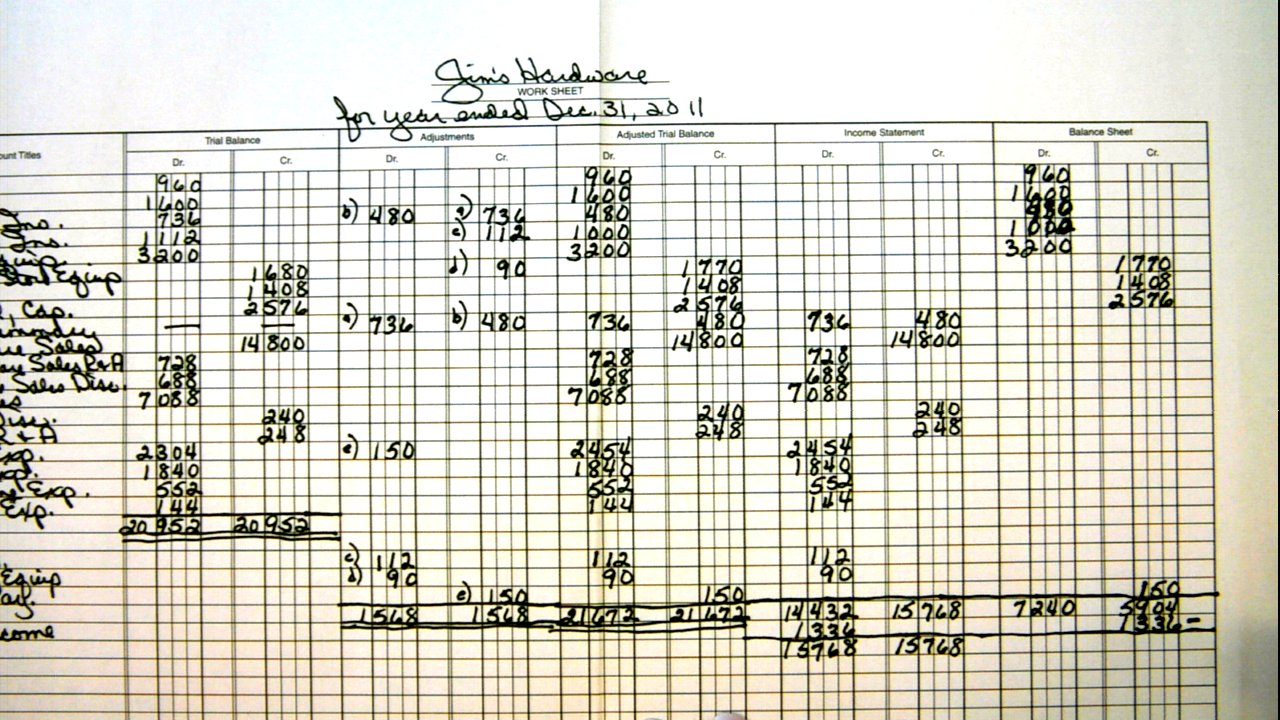 Jim's Hardware
WORK SHEET
for year ended Dec. 31, 2011
Trial Balance Adjustments Adjusted Trial Balance Income Statement Balance Sheet
unt Titles Dr. Cr. Dr. Cr. Dr. Cr. Dr. Cr. Dr. Cr.
960 960 960
1600 1600 1600
Ins. 736 b) 480 a) 736 480
Ins. 1112 c) 112 1000 1000
3200 3200 3200
Store Equip 1680 d) 90 1770 1770
1408 1408 1408
, Cap. 2576 2576 2576
— — a) 736 b) 480 736 480 736 480
Sales 14800 14800 14800
Sales R+A 728 728 728
Sales Disc. 688 688 688
7088 7088 7088
Disc. 240 240 240
R+A 248 248 248
Exp. 2304 e) 150 2454 2454
Exp. 1840 1840 1840
Exp. 552 552 552
Exp. 144 144 144
20952 20952
c) 112 112 112
Equip d) 90 90 90
Pay. e) 150 150 150
1568 1568 21672 21672 14432 15768 7240 5904
come 1336 1336
15768 15768